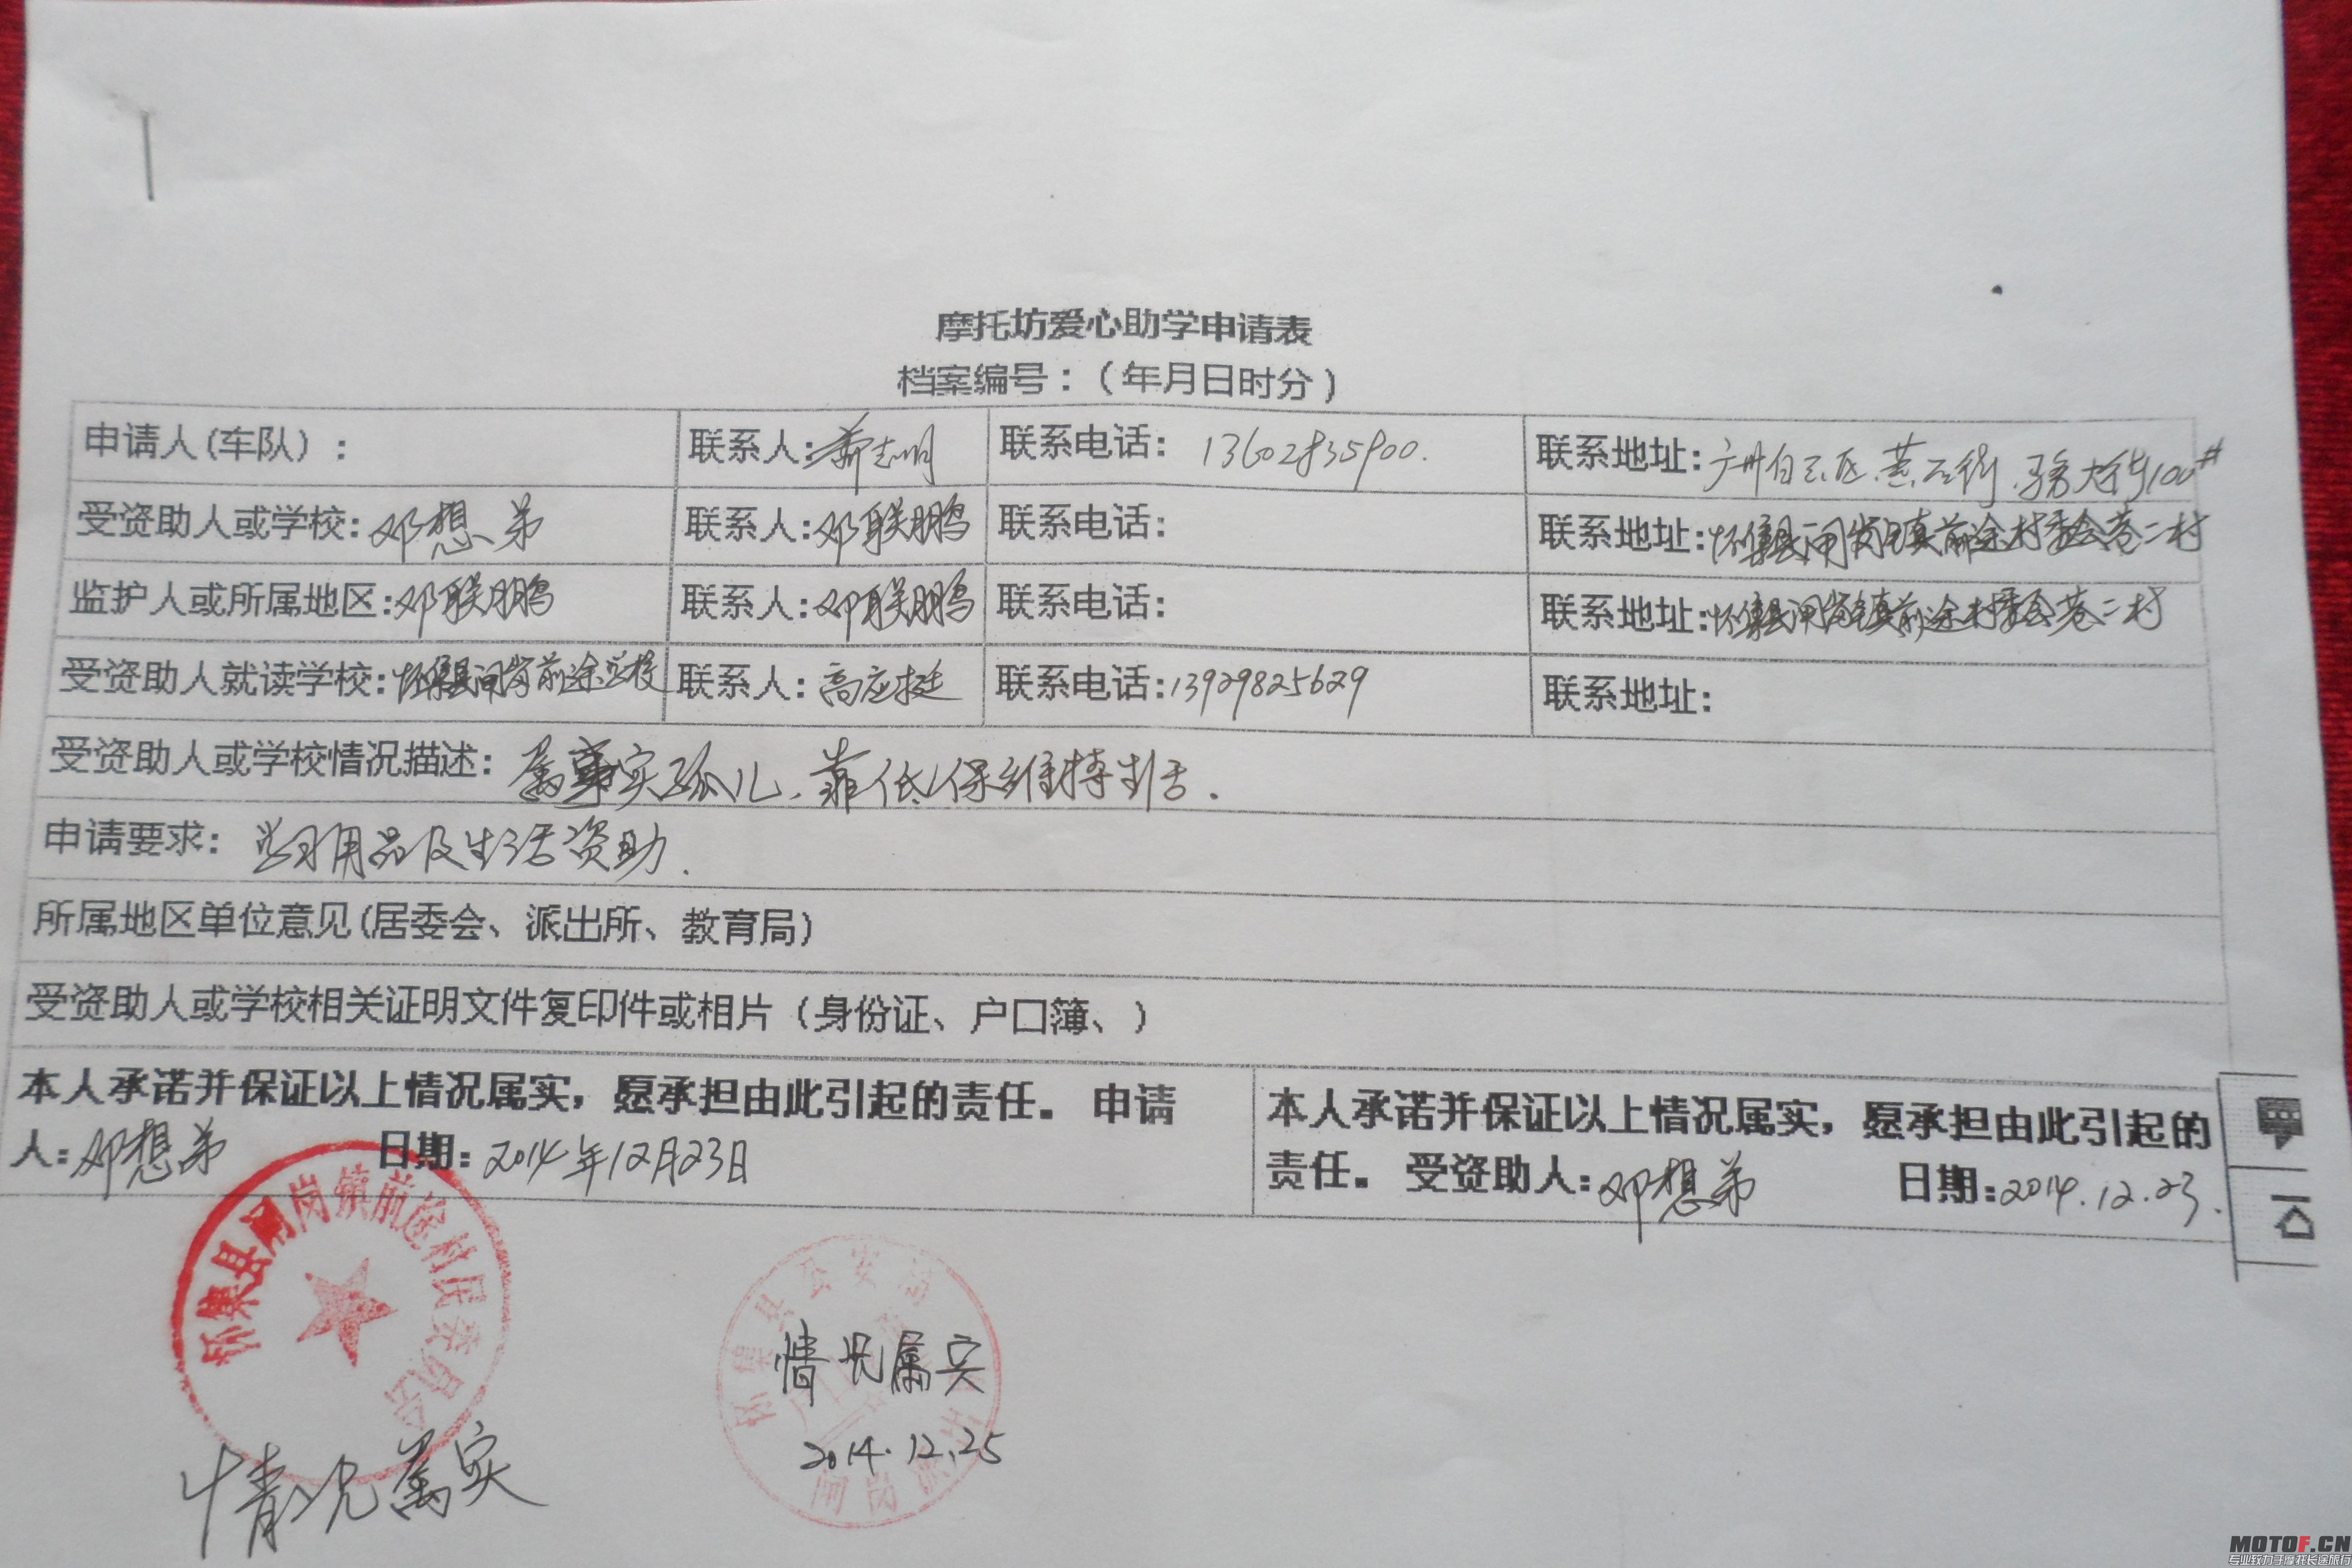 摩托坊爱心助学申请表
档案编号：（年月日时分）
申请人(车队）： 联系人: 志明 联系电话： 13602835900. 联系地址: 广州白云区.黄石街. 大街100#
受资助人或学校: 邓想弟 联系人: 邓联鹏 联系电话: 联系地址: 怀集县闸岗镇前途村委会 二村
监护人或所属地区: 邓联鹏 联系人: 邓联鹏 联系电话: 联系地址: 怀集县闸岗镇前途村委会 二村
受资助人就读学校: 怀集县闸岗前途学校 联系人: 高应挺 联系电话: 13929825629 联系地址:
受资助人或学校情况描述: 属事实孤儿、靠低保维持生活.
申请要求: 学习用品及生活资助.
所属地区单位意见(居委会、派出所、教育局)
受资助人或学校相关证明文件复印件或相片（身份证、户口簿、）
本人承诺并保证以上情况属实，愿承担由此引起的责任。 申请
人: 邓想弟 日期: 2014年12月23日
本人承诺并保证以上情况属实，愿承担由此引起的
责任。 受资助人: 邓想弟 日期: 2014.12.23.
怀集县闸岗镇前途村民委员会
情况属实
怀集县公安局闸岗派出所
情况属实
2014.12.25
MOTOF.CN
专业致力于摩托长途旅行